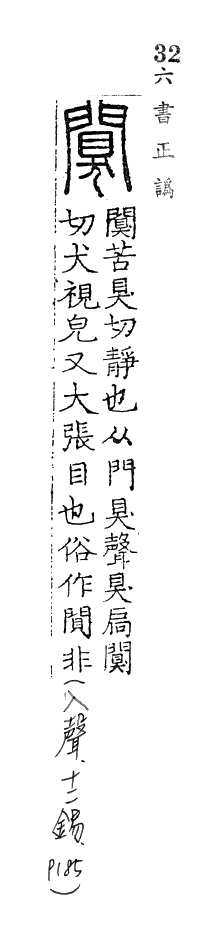 32
六書正譌
闃
闃苦狊切靜也从門狊聲狊扃闃
切犬視皃又大張目也俗作閴非(入聲、十二錫、P185)